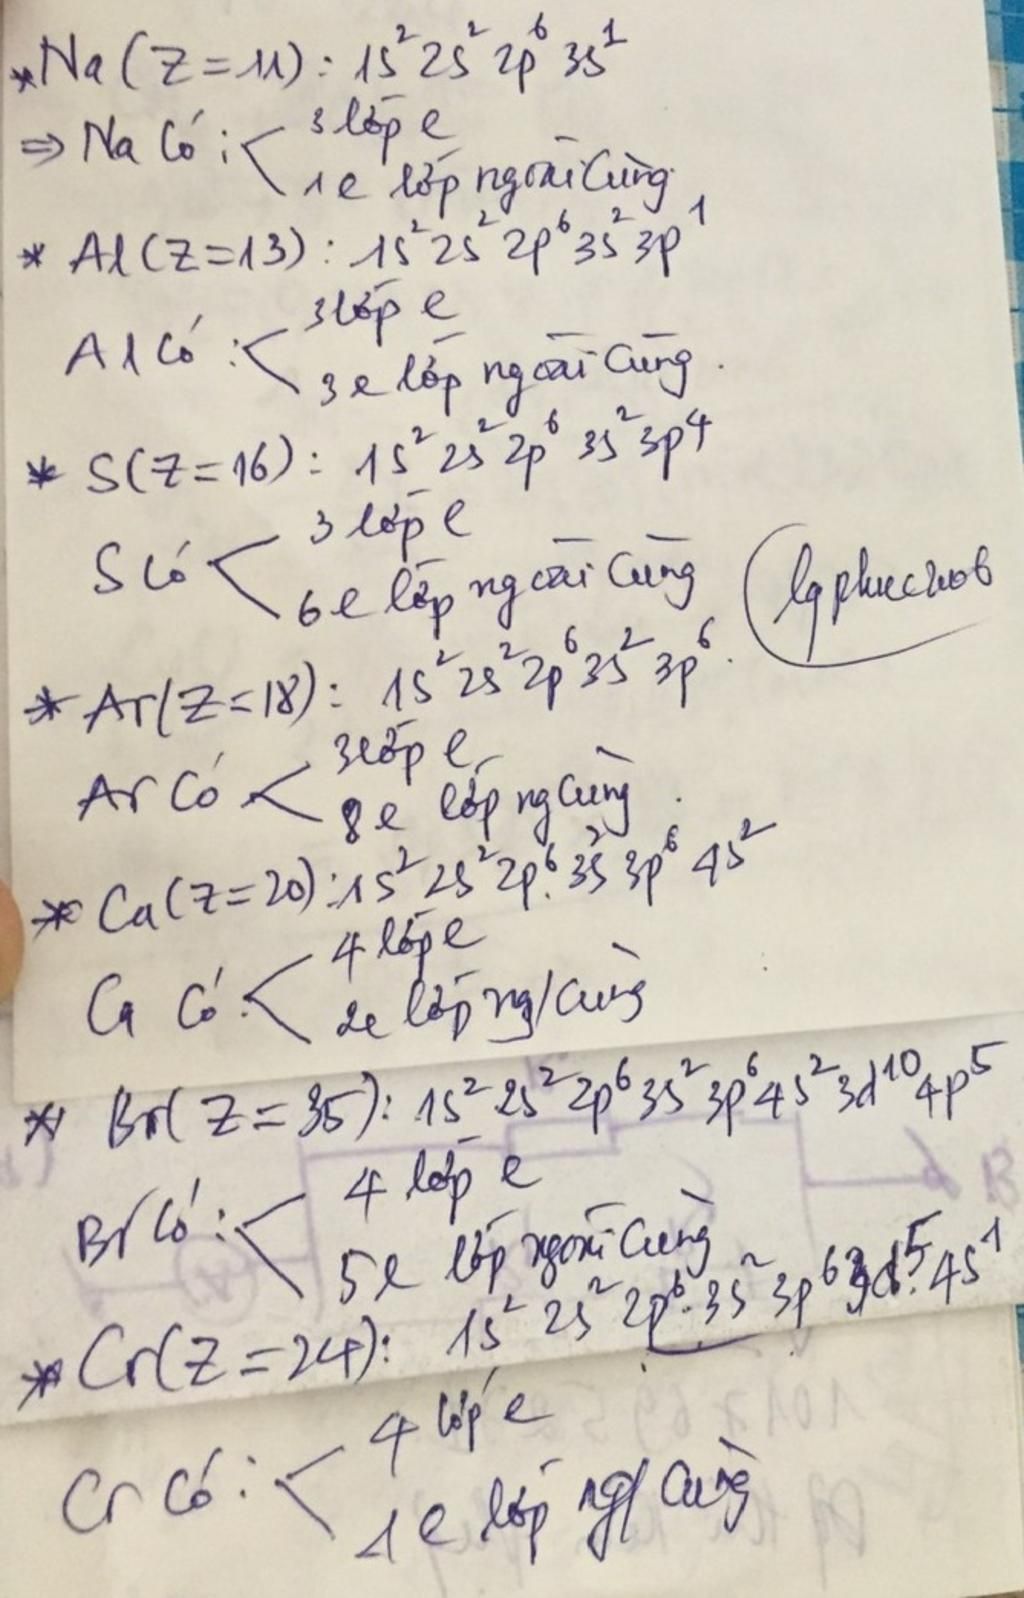 * Na (Z=11): 1s² 2s² 2p⁶ 3s¹
3 lớp e
⇒ Na có:
1e lớp ngoài cùng
* Al (Z=13): 1s² 2s² 2p⁶ 3s² 3p¹
3 lớp e
Al có:
3e lớp ngoài cùng.
* S(Z=16): 1s² 2s² 2p⁶ 3s² 3p⁴
3 lớp e
S có
6e lớp ngoài cùng
lqphuc2006
* Ar(Z=18): 1s² 2s² 2p⁶ 3s² 3p⁶.
3 lớp e
Ar có
8e lớp ng cùng.
* Ca(Z=20): 1s² 2s² 2p⁶ 3s² 3p⁶ 4s²
4 lớp e
Ca có:
2e lớp ng/cùng
* Br(Z=35): 1s² 2s² 2p⁶ 3s² 3p⁶ 4s² 3d¹⁰ 4p⁵
4 lớp e
Br có:
5e lớp ngoài cùng
* Cr(Z=24): 1s² 2s² 2p⁶ 3s² 3p⁶ 3d⁵ 4s¹
4 lớp e
Cr có:
1e lớp ng/cùng